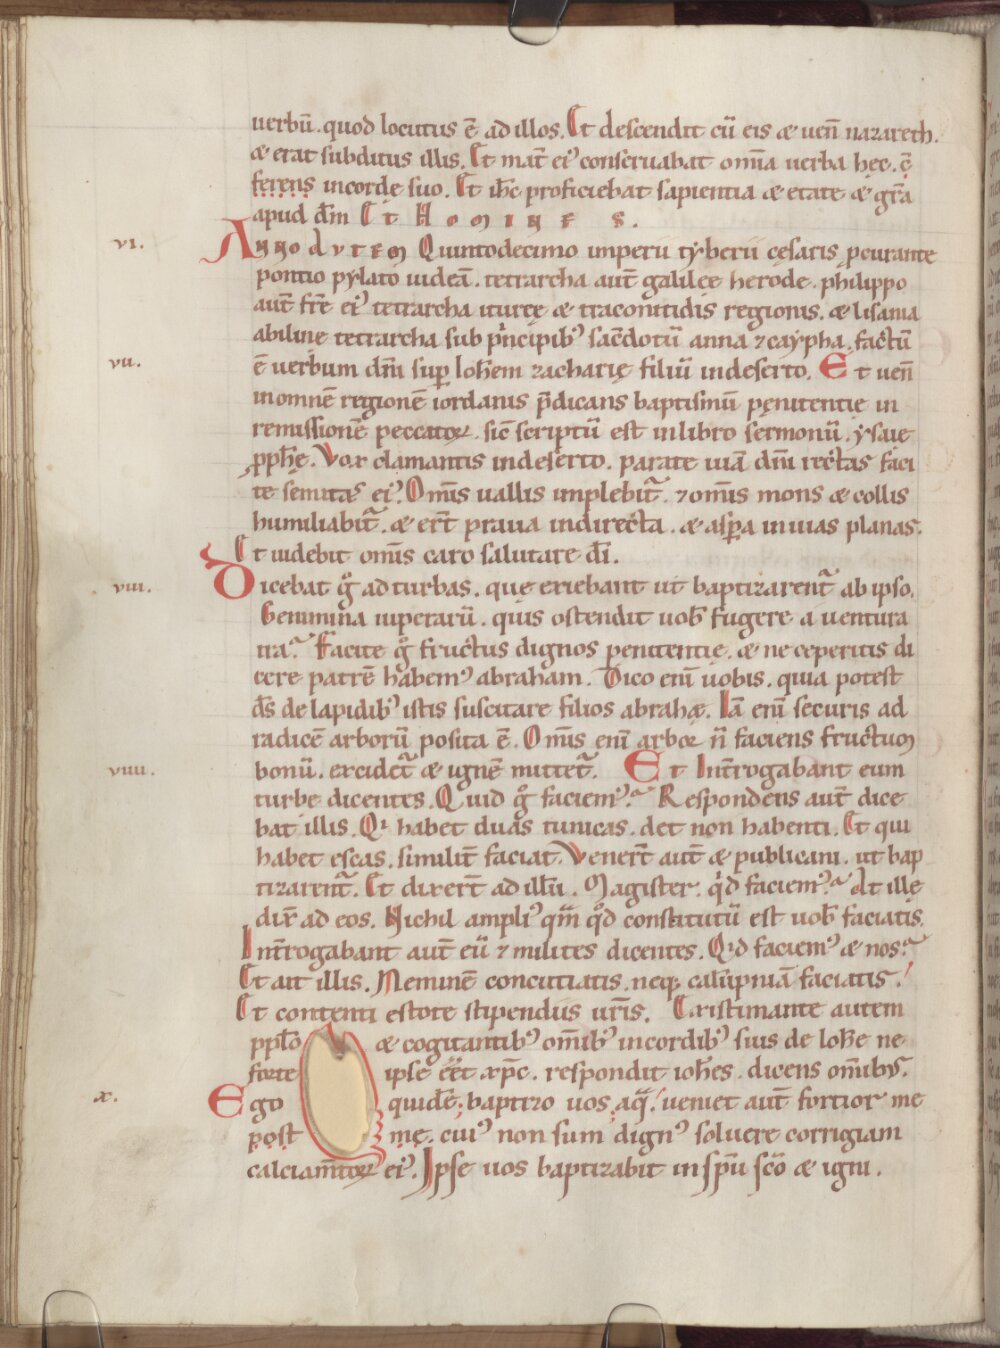 uerbū. quod locutus ē ad illos. Et descendit cū eis & uen̄ nazareth.
& erat subditus illis. Et mat̄ ei᾿ conseruabat omīa uerba hęc. c̄
ferens in corde suo. Et ih̄c proficiebat sapientia & etate & gr̄a
apud dm̄ Et Homines.
vi. Anno autem Quintodecimo imperii tyberii cęsaris, ꝓcurante
pontio pylato iudeā. tetrarcha aut̄ galileę herode. philippo
aut̄ fr̄e ei᾿ tetrarcha ituręę & traconitidis regionis. & lisania
abiline tetrarcha sub p̄ncipib᾿ sac̄dotū anna ⁊ caypha. factū
vii. ē uerbum dn̄i sup̱ ioh̄em zacharię filiū in deserto. Et uen̄
in omnē regionē iordanis p̄dicans baptismū pęnitentię in
remissionē peccatoꝝ. sic̄ scriptū est in libro sermonū. ysaie
ꝓph̄ę. Vox clamantis in deserto. parate uiā dn̄i rectas faci
te semitas ei᾿. Om̄is uallis implebit᾿. ⁊ om̄is mons & collis
humiliabit᾿. & er̄t praua in directa. & asp̱a in uias planas.
Et uidebit om̄is caro salutare dī.
viii. Dicebat g̊ ad turbas. que exiebant ut baptizarent᾿ ab ipso.
Genimina uiperarū. quis ostendit uob̄ fugere a uentura
ira. Facite g̊ fructus dignos penitentię. & ne ceperitis di
cere patrē habem᾿ abraham. Dico eni̅ uobis. quia potest
d̄s de lapidib᾿ istis suscitare filios abrahę. Iā eni̅ securis ad
radicē arborū posita ē. Om̄is eni̅ arbor n̄ faciens fructum
viiii. bonū. excidet᾿ & ignē mittet᾿. Et Int̄rogabant eum
turbe dicentes. Quid g̊ faciem᾿. Respondens aut̄ dice
bat illis. Qi habet duas tunicas. det non habenti. Et qui
habet escas. similit̄ faciat. Vener̄t aut̄ & publicani. ut bap
tizarent᾿. Et dixer̄t ad illū. Magister. q̇d faciem᾿. At illę
dix̄ ad eos. Nichil ampli᾿ qm̄ qd̊ constitutū est uob̄ faciatis.
Int̄rogabant aut̄ eū ⁊ milites dicentes. Qid faciem᾿ & nos.
Et ait illis. Neminē concutiatis. neq; calūpniā faciatis.
Et contenti estote stipendiis ur̄is. Existimante autem
ppl̄o & cogitantib᾿ om̄ib᾿ in cordib᾿ suis de ioh̄e ne
forte ipse ēēt xp̄c. respondit ioh̄es. dicens om̄ibus.
x. Ego quidē. baptizo uos aq̄. ueniet aut̄ fortior me
post mę. cui᾿ non sum dign᾿ soluere corrigiam
calciam̄toꝝ ei᾿. Ipse uos baptizabit in sp̄u sc̄o & igni.